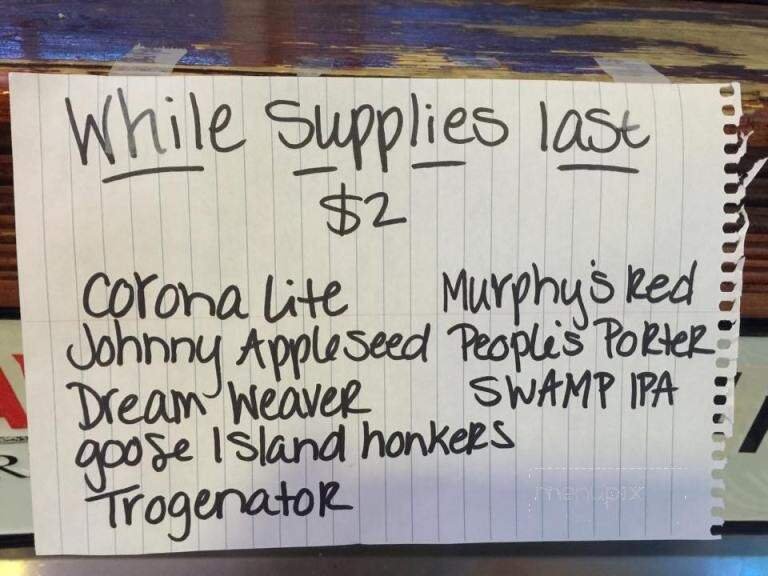 While Supplies last
$2
Corona Lite
Johnny Appleseed
Dream Weaver
goose Island honkers
Trogenator
Murphy's Red
People's Porter
SWAMP IPA
menupix